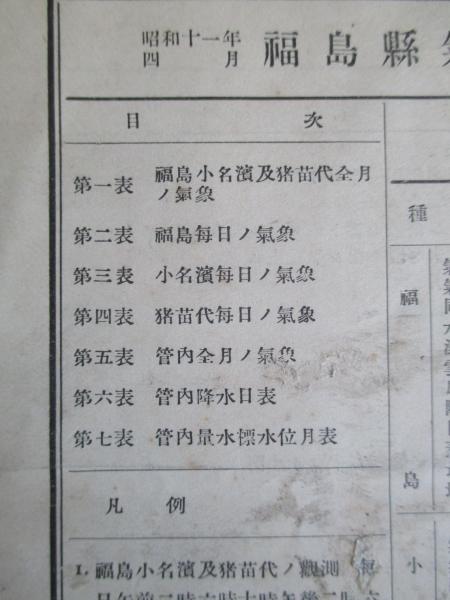 昭和十一年
四月
福島縣
目次
第一表 福島小名濱及猪苗代全月
ノ氣象
第二表 福島每日ノ氣象
第三表 小名濱每日ノ氣象
第四表 猪苗代每日ノ氣象
第五表 管內全月ノ氣象
第六表 管內降水日表
第七表 管內量水標水位月表
凡例
1. 福島小名濱及猪苗代ノ觀測
種
福島
小